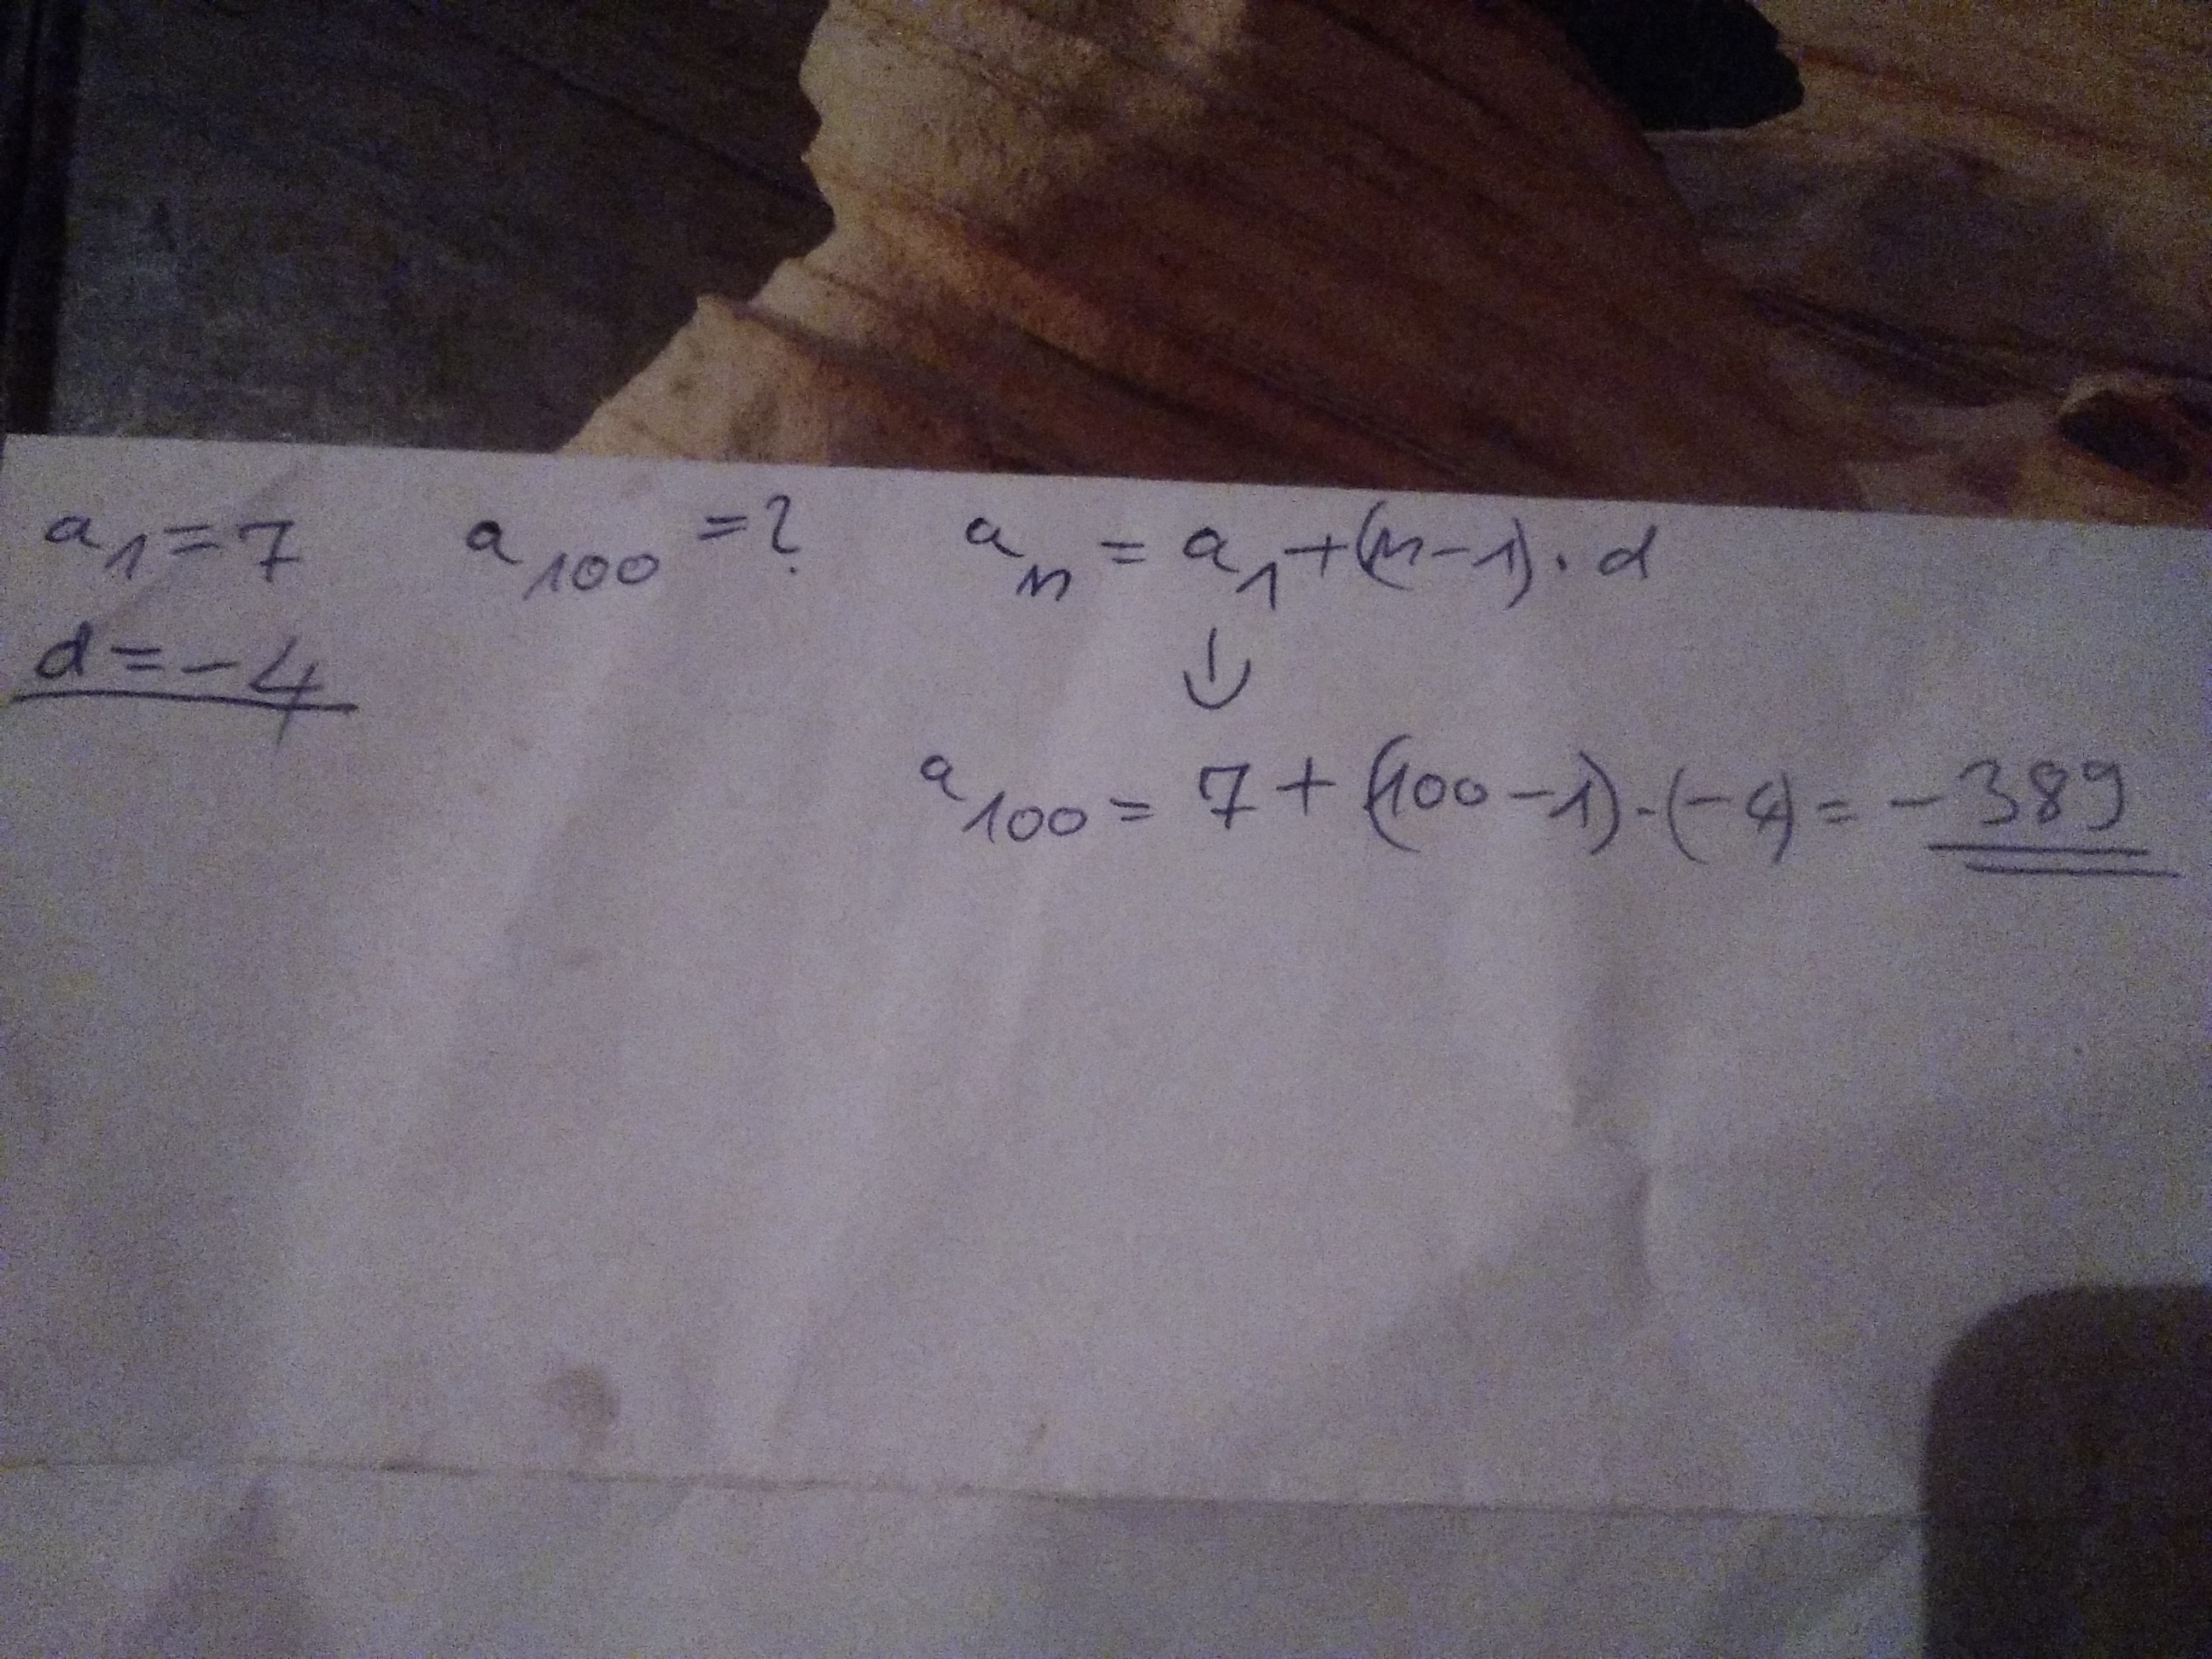 a₁=7 a₁₀₀=? aₙ=a₁+(n-1)·d
d=-4
↓
a₁₀₀=7+(100-1)·(-4)=-389